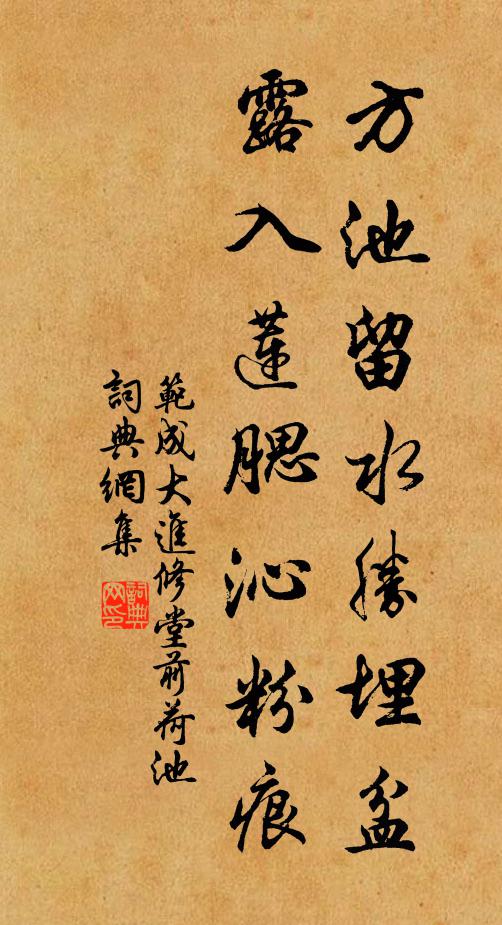 方池留水勝埋盆
露入蓮腮沁粉痕
範成大進修堂前荷池
詞典網集
詞典网印